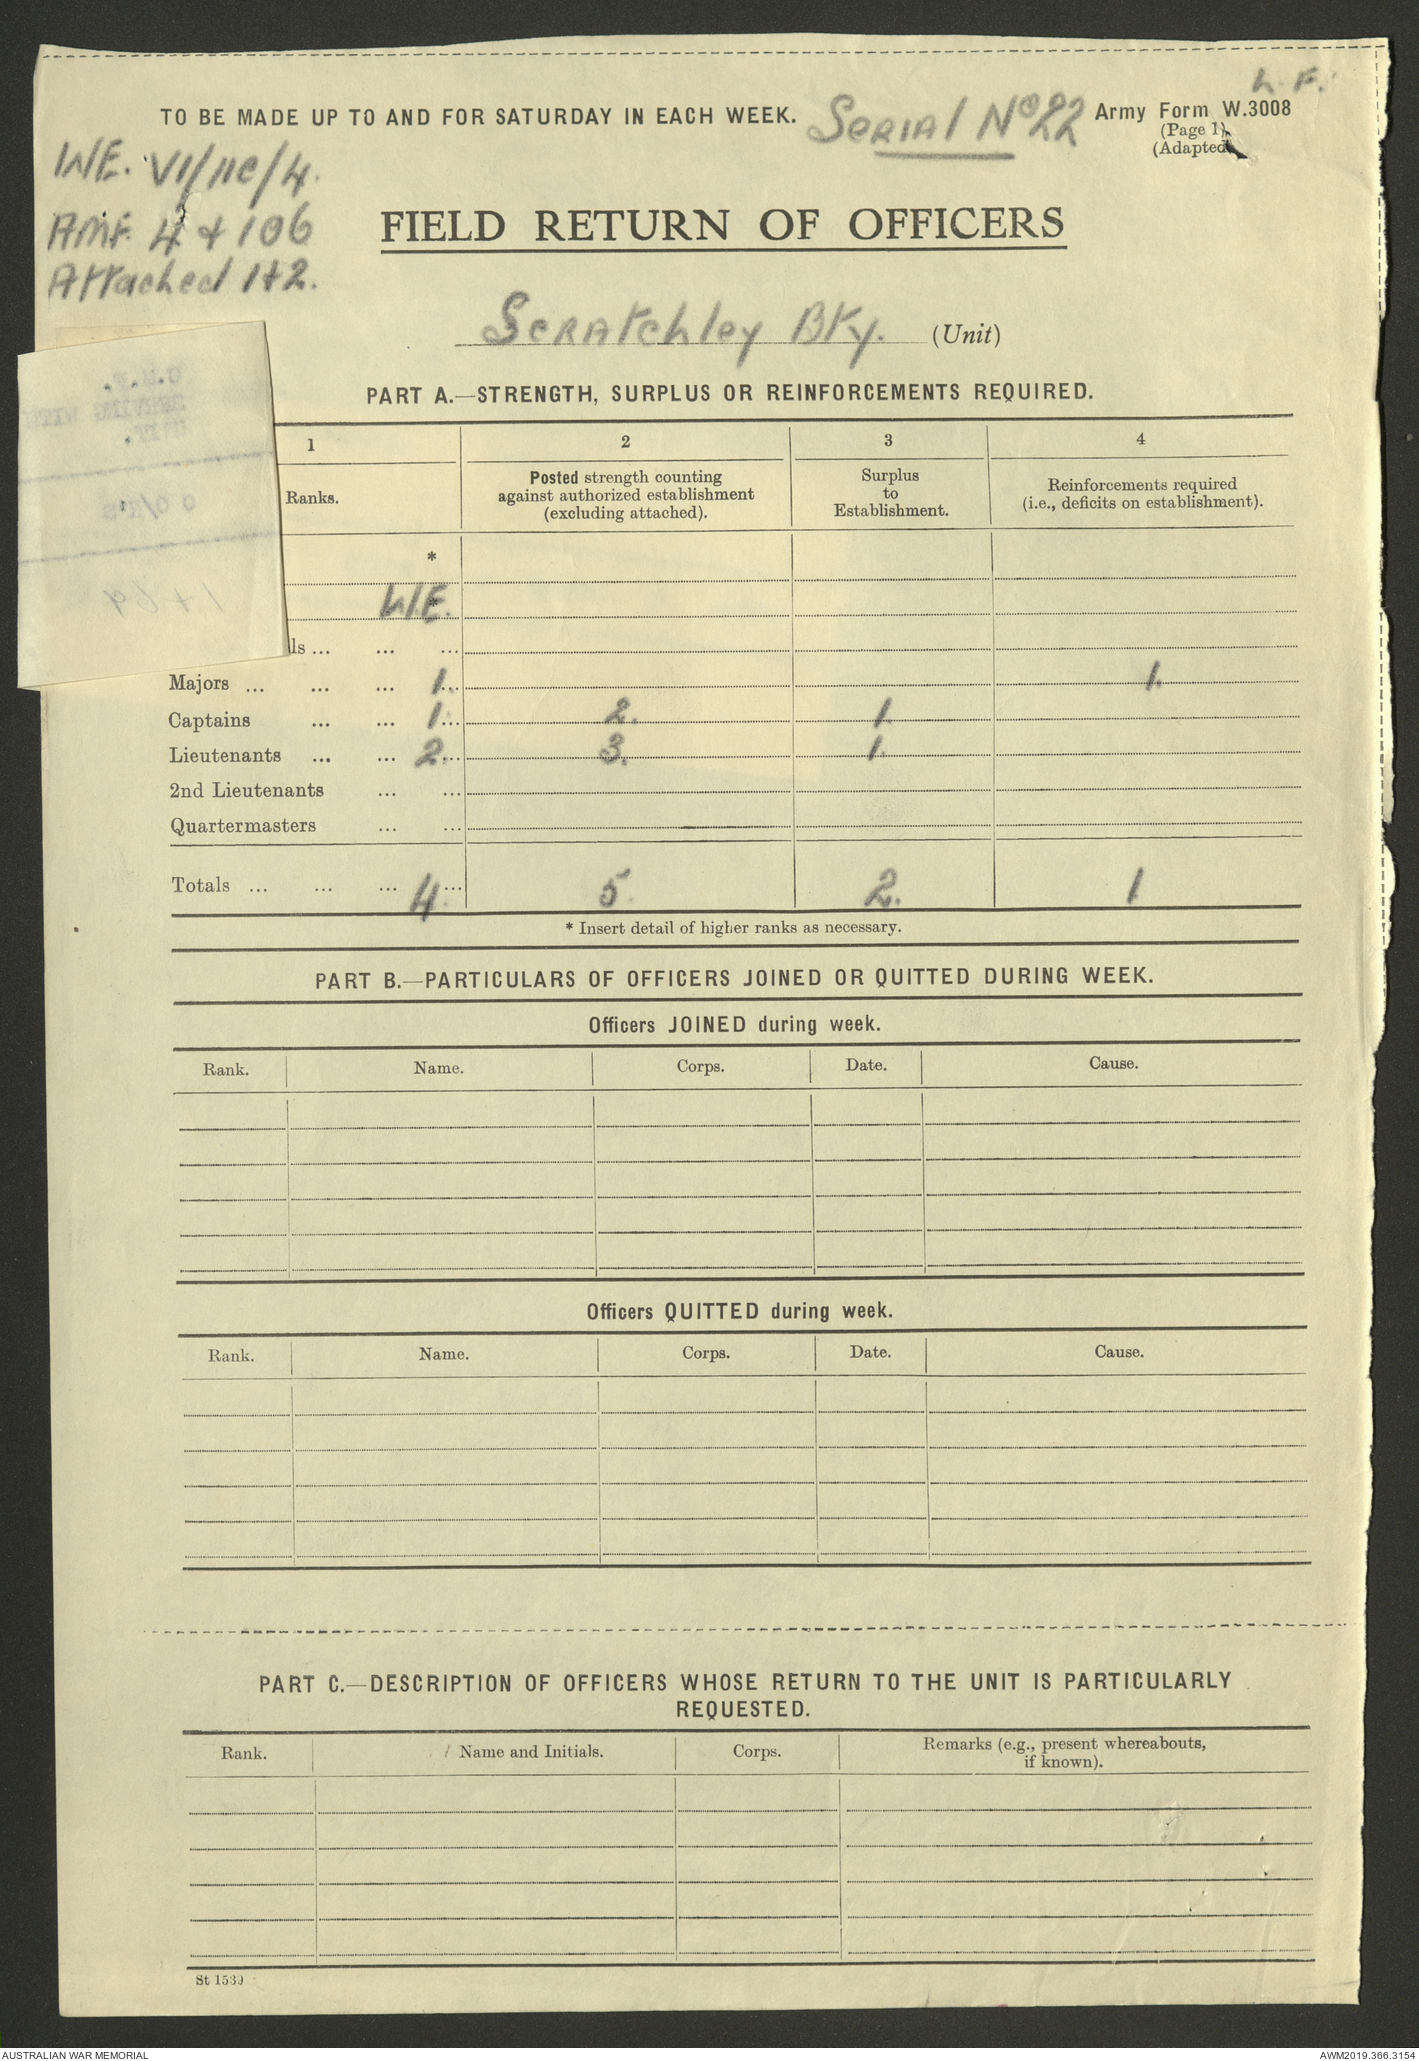 L. F.
TO BE MADE UP TO AND FOR SATURDAY IN EACH WEEK. Serial No 22 Army Form W.3008
(Page 1)
(Adapted
W.E. VI/11C/4.
AMF. 4 + 106
Attached 1+2.
FIELD RETURN OF OFFICERS
Scratchley Bty. (Unit)
PART A.—STRENGTH, SURPLUS OR REINFORCEMENTS REQUIRED.
1 2 3 4
Ranks. Posted strength counting against authorized establishment (excluding attached). Surplus to Establishment. Reinforcements required (i.e., deficits on establishment).
*
W.E.
ls ... ... ...
Majors ... ... ... 1. 1.
Captains ... ... 1. 2. 1.
Lieutenants ... ... 2. 3. 1.
2nd Lieutenants ... ...
Quartermasters ... ...
Totals ... ... ... 4. 5. 2. 1
* Insert detail of higher ranks as necessary.
PART B.—PARTICULARS OF OFFICERS JOINED OR QUITTED DURING WEEK.
Officers JOINED during week.
Rank. Name. Corps. Date. Cause.
Officers QUITTED during week.
Rank. Name. Corps. Date. Cause.
PART C.—DESCRIPTION OF OFFICERS WHOSE RETURN TO THE UNIT IS PARTICULARLY
REQUESTED.
Rank. Name and Initials. Corps. Remarks (e.g., present whereabouts, if known).
St 1539
AUSTRALIAN WAR MEMORIAL AWM2019.366.3154